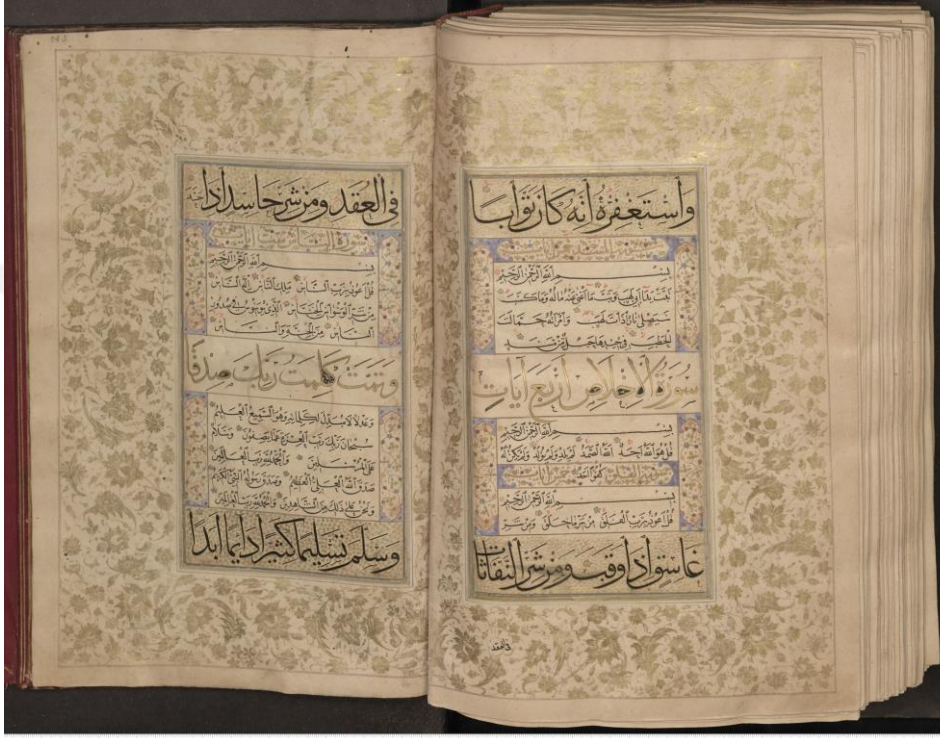 وَاسْتَغْفِرْهُ اِنَّهُ كَانَ تَوَّابًا
بِسْمِ اللهِ الرَّحْمٰنِ الرَّحِيْمِ
تَبَّتْ يَدَا اَبِى لَهَبٍ وَتَبَّ مَا اَغْنٰى عَنْهُ مَالُهُ وَمَا كَسَبَ
سَيَصْلٰى نَارًا ذَاتَ لَهَبٍ وَامْرَاَتُهُ حَمَّالَتَ
الْحَطَبِ فِى جِيْدِهَا حَبْلٌ مِنْ مَسَدٍ
سورة الاخلاص اربع آيات
بِسْمِ اللهِ الرَّحْمٰنِ الرَّحِيْمِ
قُلْ هُوَ اللهُ اَحَدٌ اللهُ الصَّمَدُ لَمْ يَلِدْ وَلَمْ يُوْلَدْ وَلَمْ يَكُنْ لَهُ
كُفُوًا اَحَدٌ
بِسْمِ اللهِ الرَّحْمٰنِ الرَّحِيْمِ
قُلْ اَعُوْذُ بِرَبِّ الْفَلَقِ مِنْ شَرِّ مَا خَلَقَ وَمِنْ شَرِّ
غَاسِقٍ اِذَا وَقَبَ وَمِنْ شَرِّ النَّفَّاثَاتِ
فى العقد
فِى الْعُقَدِ وَمِنْ شَرِّ حَاسِدٍ اِذَا حَسَدَ
سورة الناس ست آيات
بِسْمِ اللهِ الرَّحْمٰنِ الرَّحِيْمِ
قُلْ اَعُوْذُ بِرَبِّ النَّاسِ مَلِكِ النَّاسِ اِلٰهِ النَّاسِ
مِنْ شَرِّ الْوَسْوَاسِ الْخَنَّاسِ الَّذِى يُوَسْوِسُ فِى صُدُوْرِ
النَّاسِ مِنَ الْجِنَّةِ وَالنَّاسِ
وَتَمَّتْ كَلِمَتُ رَبِّكَ صِدْقًا
وَعَدْلًا لَا مُبَدِّلَ لِكَلِمَاتِهِ وَهُوَ السَّمِيْعُ الْعَلِيْمُ
سُبْحَانَ رَبِّكَ رَبِّ الْعِزَّةِ عَمَّا يَصِفُوْنَ وَسَلَامٌ
عَلَى الْمُرْسَلِيْنَ وَالْحَمْدُ لِلّٰهِ رَبِّ الْعَالَمِيْنَ
صَدَقَ اللهُ الْعَلِىُّ الْعَظِيْمُ وَصَدَقَ رَسُوْلُهُ النَّبِىُّ الْكَرِيْمُ
وَنَحْنُ عَلٰى ذٰلِكَ مِنَ الشَّاهِدِيْنَ وَالْحَمْدُ لِلّٰهِ رَبِّ الْعَالَمِيْنَ
وَسَلَّمَ تَسْلِيْمًا كَثِيْرًا دَائِمًا اَبَدًا